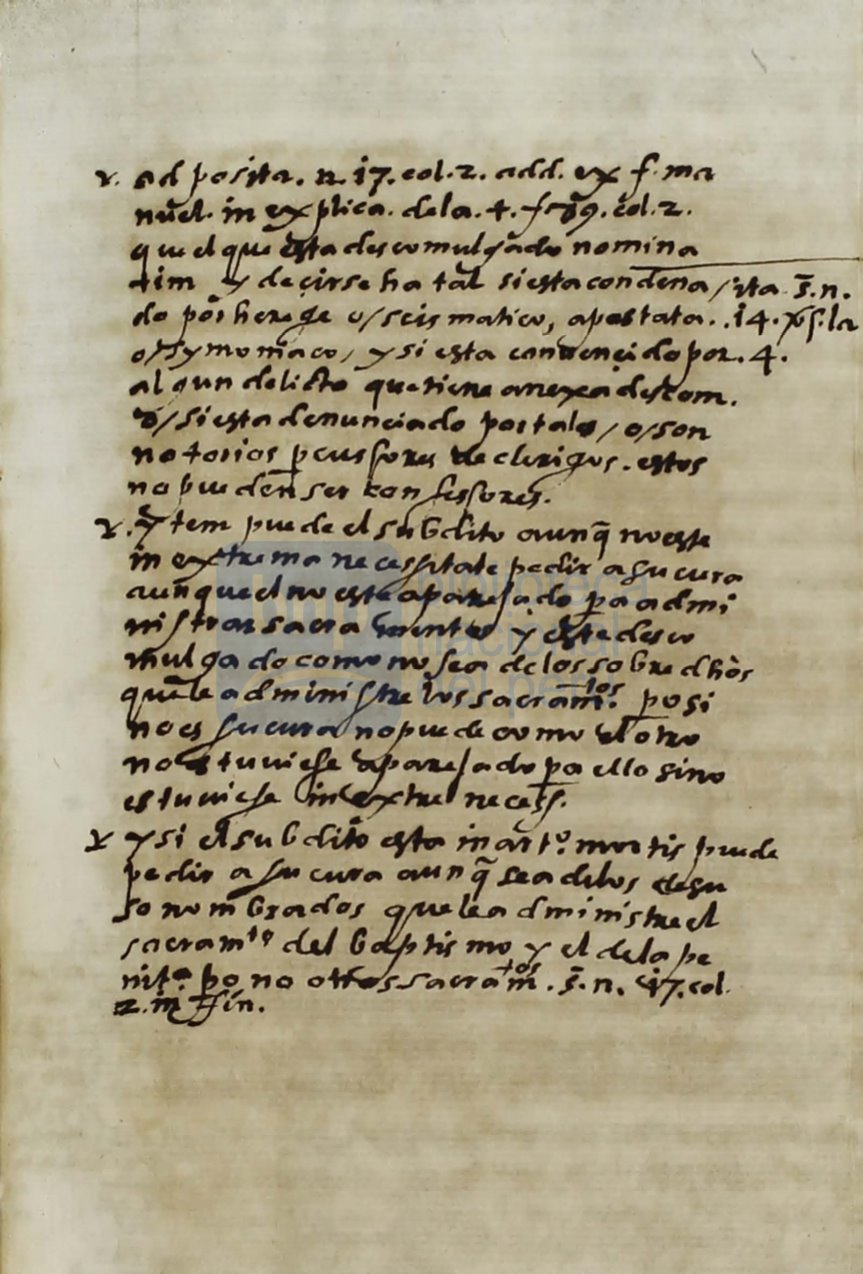 v. ad posita. n. 17. col. 2. add. ex f. ma
nuel. in explica. de la. 4. f. 89. col. 2.
que el que esta descomulgado nomina
tim y deçirse ha tal si esta condena / ita s. n.
do por herege o/scismatico, apostata. . 14. la
o/symoniaco, y si esta convençido por. 4.
algun delicto que tiene anexa descom.
o/si esta denunciado por tal / o/son
notorios pcussores de clerigos. estos
no pueden ser confessores.
v. ytem puede el subdito aunq̃ no este
in extrema necessitate pedir a su cura
aunque el no este aparejado pa admi
nistrar sacramentos y este desco
mulgado como no sea de los sobredhos
que le administre los sacramtos. po si
no es su cura no puede como el otro
no estuviese aparejado pa ello sino
estuviese in extre necess.
v y si el subdito esta in arto. mortis puede
pedir a su cura aunq̃ sea de los desu
so nombrados que le administre el
sacramto del baptismo y el de la pe
nita. po no otros sacramtos. s. n. 17. col.
2. in fin.